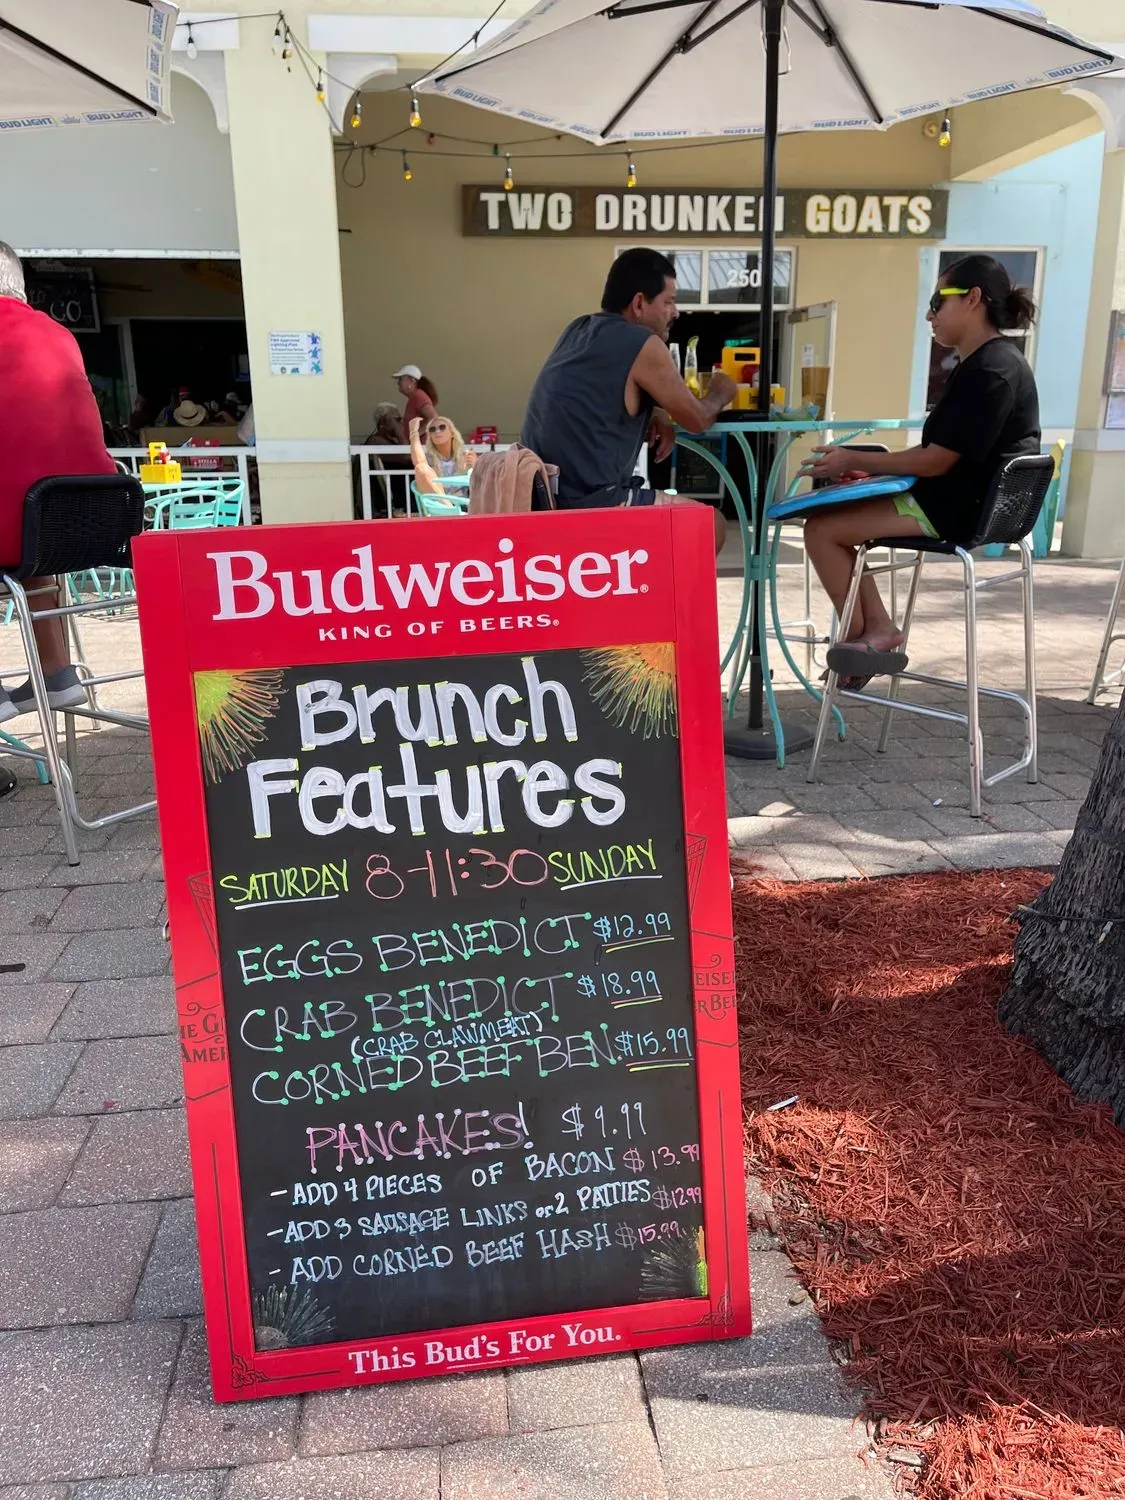 BUD LIGHT
BUD LIGHT
BUD LIGHT
BUD LIGHT
BUD LIGHT
BUD LIGHT
TWO DRUNKEN GOATS
250
CO
Budweiser®
KING OF BEERS®
Brunch
Features
SATURDAY 8-11:30 SUNDAY
EGGS BENEDICT $12.99
CRAB BENEDICT $18.99
(CRAB CLAWMEAT)
CORNED BEEF BEN. $15.99
PANCAKES! $9.99
- ADD 4 PIECES OF BACON $13.99
- ADD 3 SAUSAGE LINKS or 2 PATTIES $12.99
- ADD CORNED BEEF HASH $15.99
This Bud's For You.